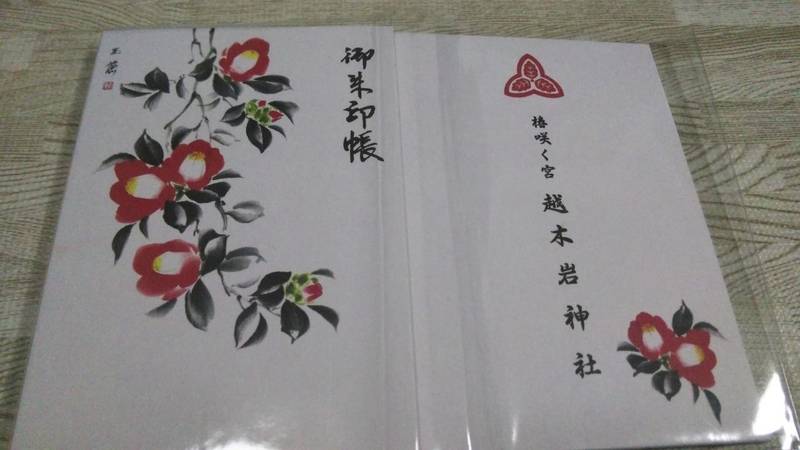 御朱印帳
椿咲く宮
越木岩神社